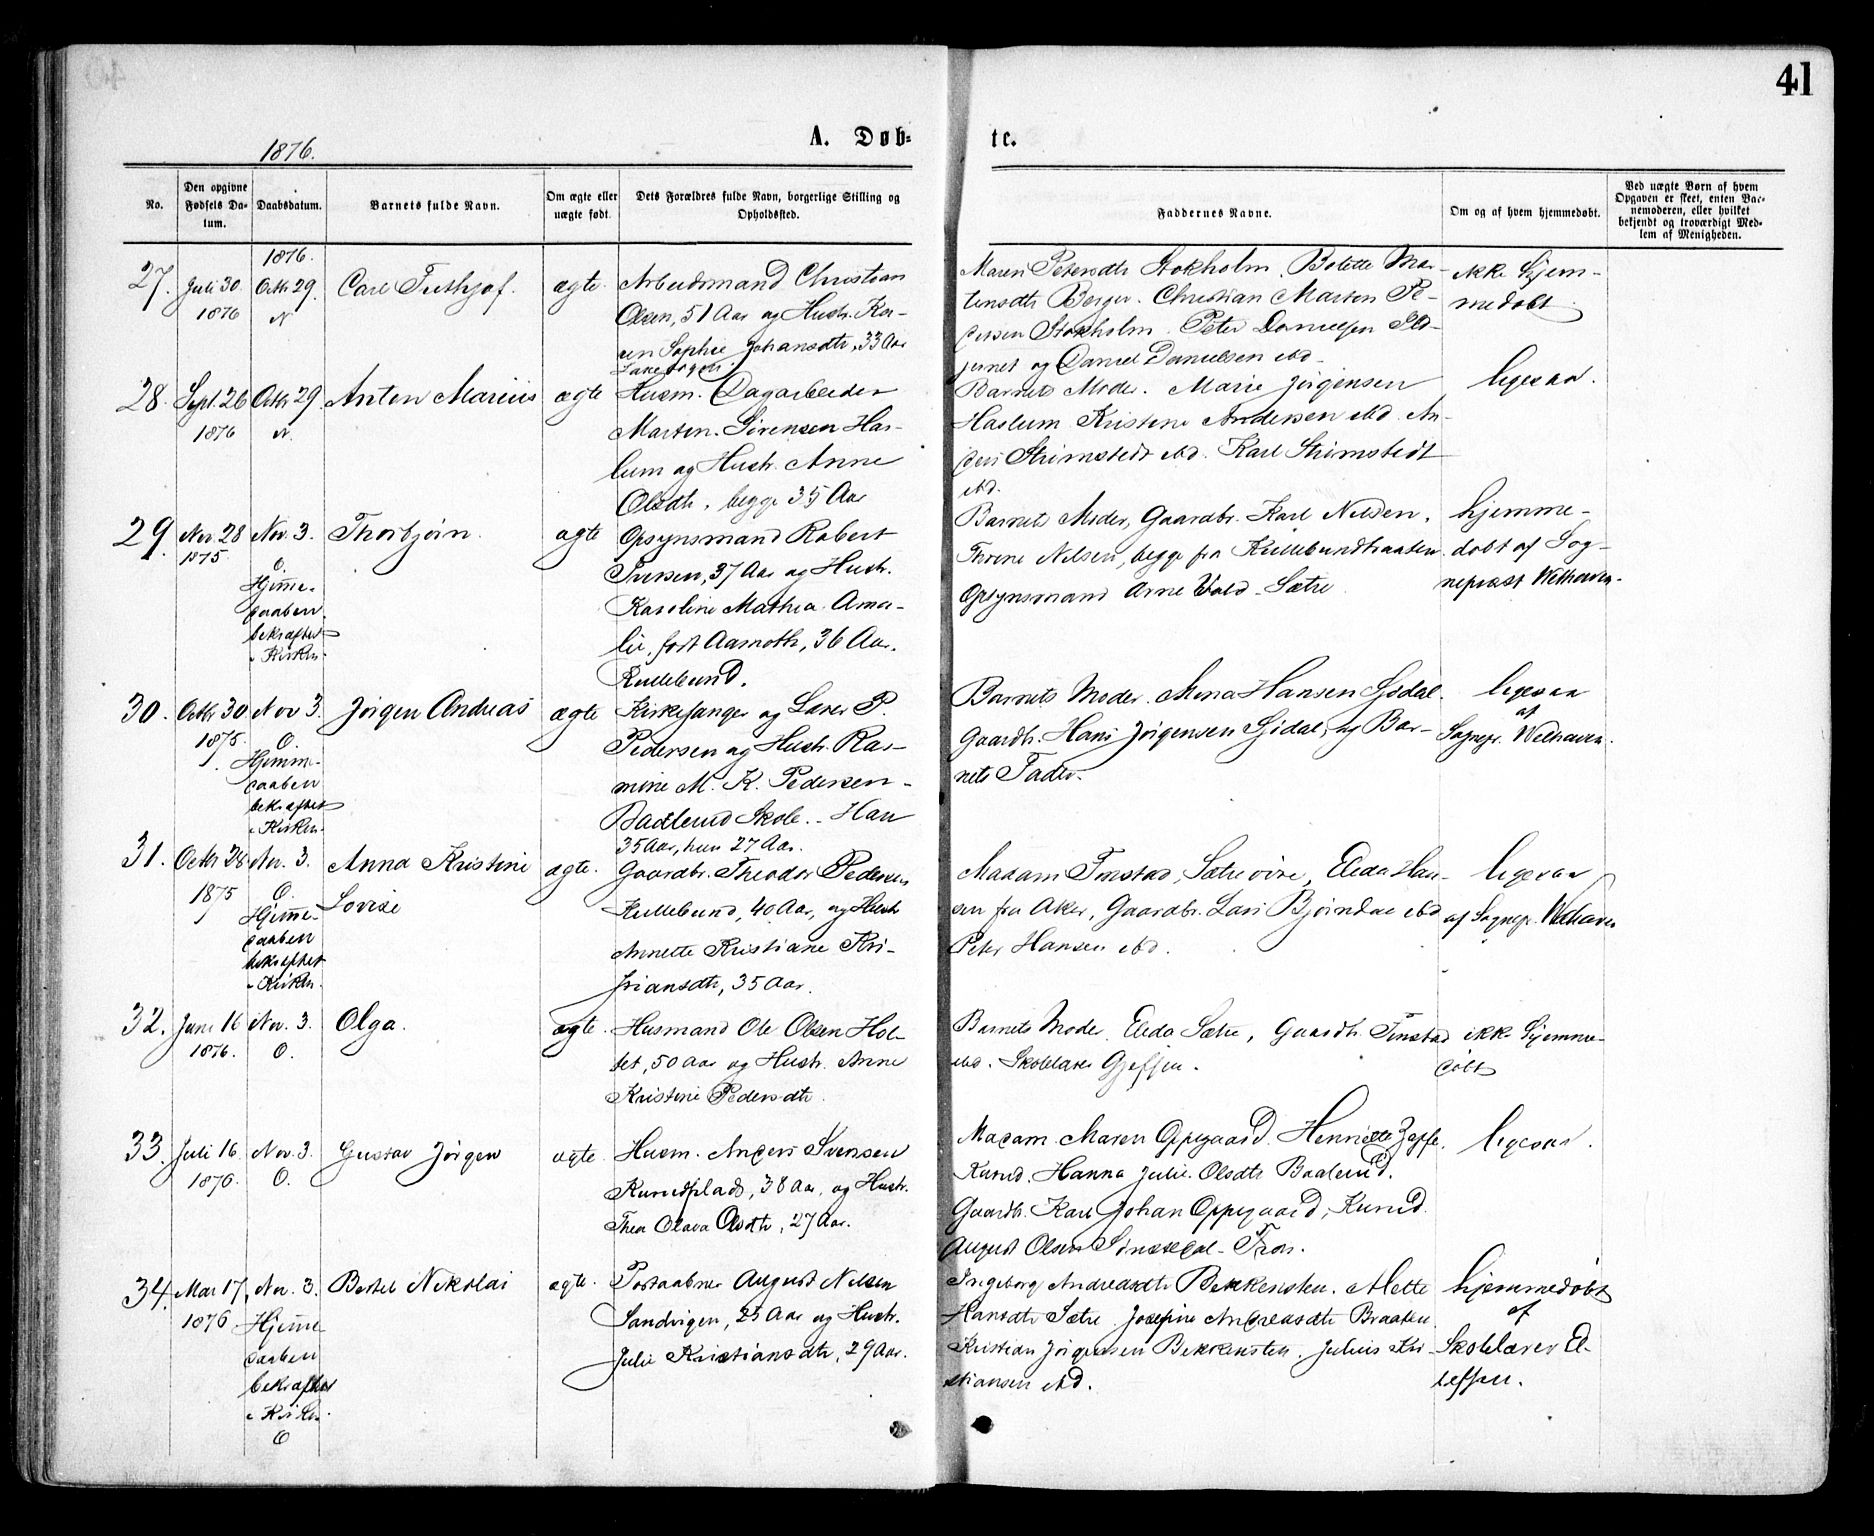 41
A. Døb-
te.
1876.
No.
Den opgivne Fødsels Da-
tum.
Daabsdatum.
Barnets fulde Navn.
Om ægte eller
uægte født.
Dets Forældres fulde Navn, borgerlige Stilling og
Opholdssted.
Faddernes Navne.
Om og af hvem hjemmedøbt.
Ved uægte Børn af hvem
Opgaven er skeet, enten Bar-
nemoderen, eller hvilket
bekjendt og troværdigt Med-
lem af Menigheden.
1876.
27. Juli 30. Octbr 29. Carl Frithjof. ægte. Arbeidsmand Christian
1876 N
Olsen, 51 Aar og Hustr. Ka-
ren Sophie Johansdtr, 33 Aar
Maren Petersdtr Stokholm. Bolette Mar-
tensdtr Berger. Christian Marten Pe-
dersen Stokholm. Peter Danielsen
og Daniel Danielsen ibd.
ikke hjem-
medøbt
28. Sept. 26 Octbr 29. Anton Marius ægte Husm. Dagarbeider
1876 N.
Marten Sørensen Has-
lum og Hustr. Anne
Olsdtr. begge 35 Aar
Barnets Moder. Marie Jørgensen
Haslum Kristine Andersen ibd. An-
ders Strimstedt ibd. Karl Strimstedt
ibd.
ligesaa.
29. Nov. 28 Nov. 3. Thorbjørn. ægte Opsynsmand Robert
1875 O.
Hjemme-
daaben
bekræftet
i Kirken.
Iversen, 37 Aar og Hustr.
Karoline Mathea Ama-
lie, født Aamoth, 36 Aar.
Kullebund.
Barnets Moder, Gaardbr. Karl Nilsen.
Thrine Nilsen, begge fra Kullebundbraaten.
Opsynsmand Arne Vold Sætre
hjemme-
døbt af Sog-
nepræst Welhaven.
30. Octbr 30 Nov 3. Jørgen Andreas ægte Kirkesanger og Lærer P.
1875. O.
Hjemme-
daaben
bekræftet
i Kirken.
Pedersen og Hustr. Ras-
mine M. K. Pedersen
Skole. Han
35 Aar, hun 27 Aar.
Barnets Moder. Mina Hansen Gjdal.
Gaardb. Hans Jørgensen Gjdal, og Bar-
nets Fader.
ligesaa
af
Sognepr. Welhaven.
31. Octbr 28 Nov. 3. Anna Kristine ægte. Gaardbr. Theodor Pedersen
1875 O.
Lovise
Hjemme-
daaben
bekræftet
i Kirken.
Kullebund, 40 Aar, og Hustr
Annette Kristiane Kri-
stiansdtr, 35 Aar.
Madam Finstad, Sætre øvre, Elida Han-
sen fra Aker, Gaardbr. Lars Bjørndal ibd
Peter Hansen ibd.
ligesaa
af Sognepr. Welhaven
32. Juni 16 Nov. 3. Olga. ægte. Husmand Ole Olsen Hol-
1876. O.
tet, 50 Aar og Hustr. Anne
Kristine Pedersdtr.
Barnets Moder. Elida Sætre, Gaardb. Finstad
ibd. Skolelærer Gjefsen.
ikke hjemme-
døbt
33. Juli 16 Nov. 3. Gustav Jørgen ægte. Husm. Anders Svensen
1876. O.
Kurudplads, 38 Aar, og Hustr.
Thea Olava Olsdtr, 27 Aar.
Madam Maren Oppegaard. Henriette
Kurud. Hanna Julie Olsdtr Baalrud.
Gaardb. Karl Johan Oppegaard, Kurud.
August Olsen
ligesaa.
34. Mai 17. Nov. 3. Bertel Nikolai ægte. Postaabner August Nilsen
1876
Hjemme-
daaben
bekræftet
i Kirken.
O
Sandvigen, 25 Aar og Hustr.
Julie Kristiansdtr, 29 Aar.
Ingeborg Andreasdtr Bekkensten. Mette
Hansdtr Sætre. Josefine Andreasdtr Braaten.
Kristian Jørgensen Bekkensten. Julius Kri-
stiansen ibd.
hjemmedøbt
af
Skolelærer El-
lefsen.